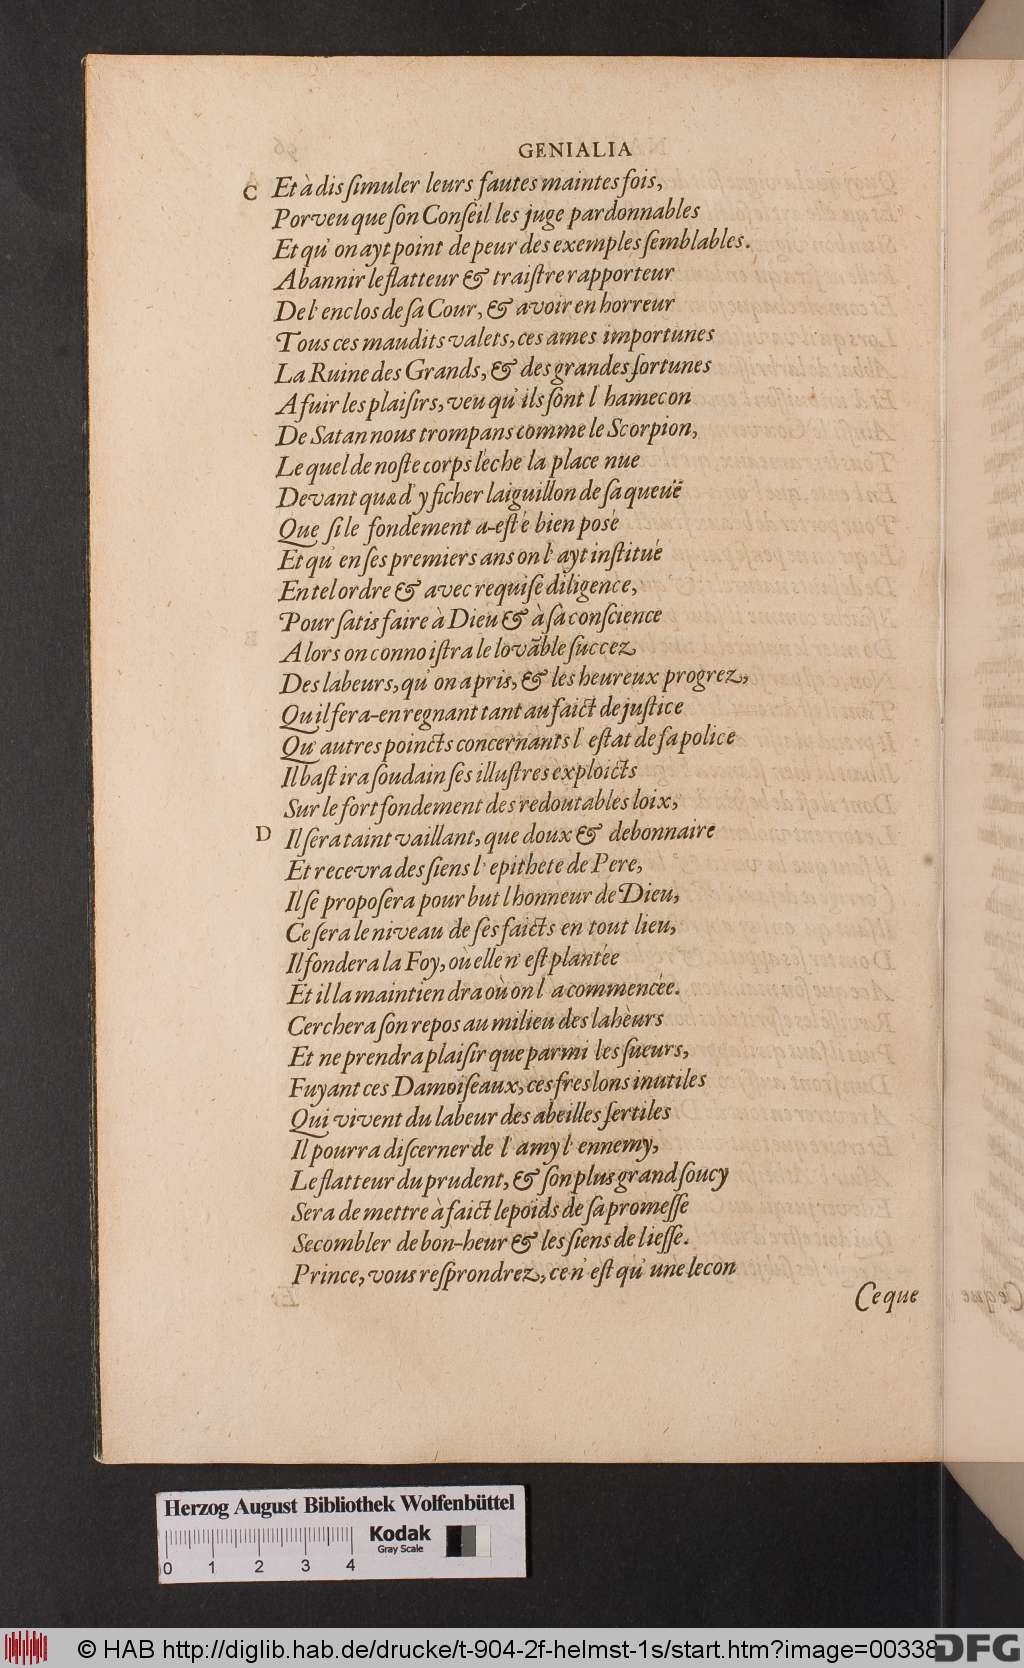 GENIALIA
C Et à dis ſimuler leurs fautes maintes fois,
Porveu que ſon Conſeil les juge pardonnables
Et qu' on ayt point de peur des exemples ſemblables.
A bannir le flatteur & traiſtre rapporteur
De l' enclos de ſa Cour, & avoir en horreur
Tous ces maudits valets, ces ames importunes
La Ruine des Grands, & des grandes fortunes
A fuir les plaiſirs, veu qu' ils ſont l' hamecon
De Satan nous trompans comme le Scorpion,
Le quel de noſte corps leche la place nue
Devant quãd' y ficher laiguillon de ſa queuë
Que ſi le fondement a-eſté bien posé
Et qu' en ſes premiers ans on l' ayt inſtitué
En tel ordre & avec requiſe diligence,
Pour ſatis faire à Dieu & à ſa conſcience
Alors on connoiſtra le lovãble ſuccez
Des labeurs, qu' on a pris, & les heureux progrez,
Quil fera-en regnant tant au faict de juſtice
Qu' autres poincts concernants l' eſtat de ſa police
Il baſtira ſoudain ſes illuſtres exploicts
Sur le fort fondement des redoutables loix,
D Il ſera taint vaillant, que doux & debonnaire
Et recevra des ſiens l' epithete de Pere,
Il ſe propoſera pour but lhonneur de Dieu,
Ce ſera le niveau de ſes faicts en tout lieu,
Il fondera la Foy, où elle n' eſt plantée
Et il la maintien dra où on l' a commencée.
Cerchera ſon repos au milieu des labeurs
Et ne prendra plaiſir que parmi les ſueurs,
Fuyant ces Damoiſeaux, ces freslons inutiles
Qui vivent du labeur des abeilles fertiles
Il pourra diſcerner de l' amy l' ennemy,
Le flatteur du prudent, & ſon plus grand ſoucy
Sera de mettre à faict le poids de ſa promeſſe
Se combler de bon-heur & les ſiens de lieſſe.
Prince, vous reſprondrez, ce n' eſt qu' une lecon
Ce que
Herzog August Bibliothek Wolfenbüttel
Kodak
Gray Scale
0 1 2 3 4
© HAB http://diglib.hab.de/drucke/t-904-2f-helmst-1s/start.htm?image=00338
DFG